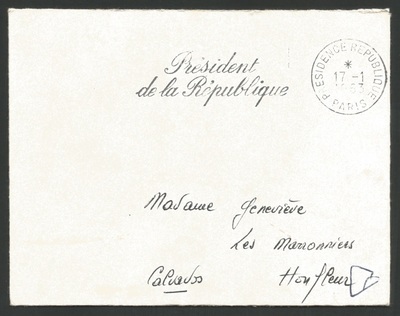 Président
de la République
PRESIDENCE REPUBLIQUE
*
17-1
PARIS
Madame Geneviève
Les Marronniers
Calvados Honfleur